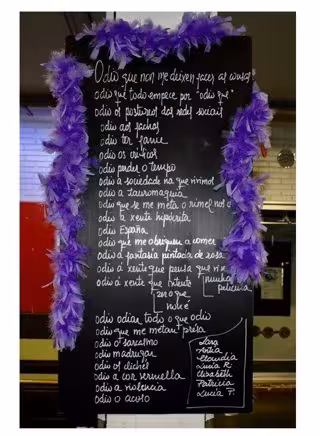 Odio que non me deixen facer as cousas
odio que todo empece por "odio que"
odio os postureos das redes sociais
odio aos fachas
odio ter fame
odio os críticos
odio perder o tempo
odio a sociedade na que vivimos
odio a tauromaquia
odio que se me meta o rimel no
odio a xente hipócrita
odio España
odio que me obriguen a comer
odio a fantasía pintada de rosa
odio a xente que pensa que vive
nunha
película
odio a xente que intente
ser o que
non é
odio odiar todo o que odio
odio que me metan presa
odio o sarcasmo
odio madrugar
odio os clichés
odio a cor vermella
odio a violencia
odio o acoso
Sara
Antía
Claudia
Lucía R.
Elisabeth
Patricia
Lucía P.